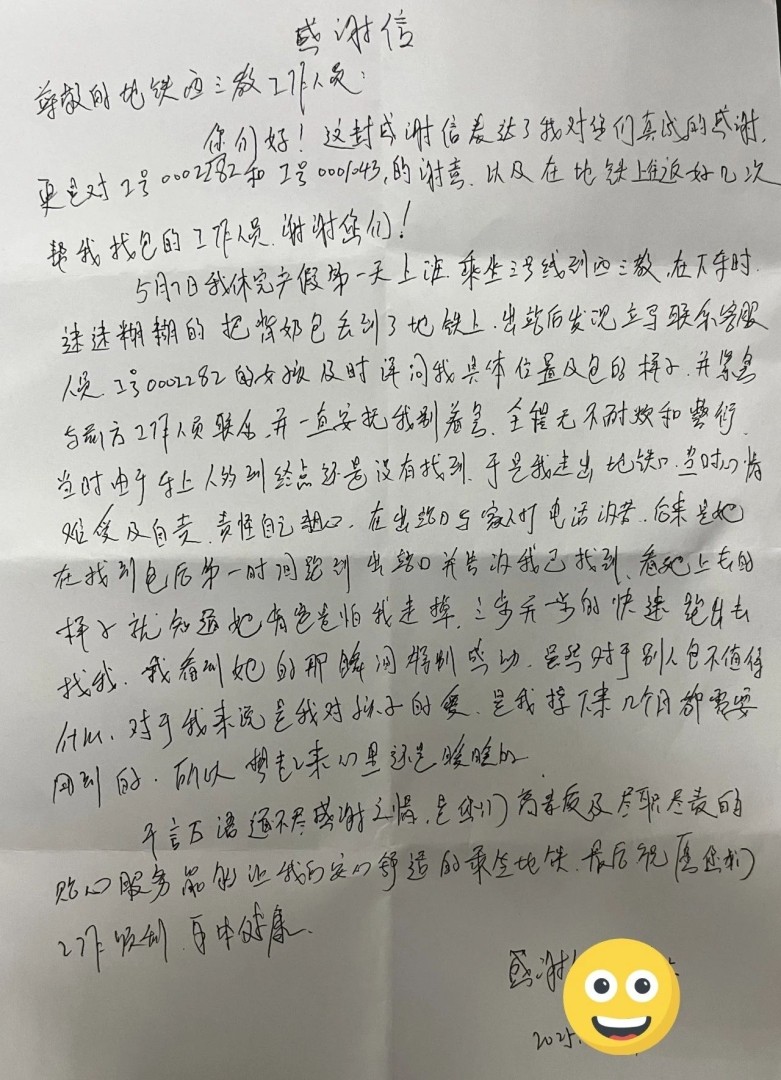 感谢信
尊敬的地铁西三教工作人员：
您们好！这封感谢信表达了我对您们真诚的感谢，
更是对工号0002282和工号0001043,的谢意.以及在地铁上往返好几次
帮我找包的工作人员.谢谢您们！
5月7日我休完产假第一天上班.乘坐3号线到西三教.在下车时.
迷迷糊糊的把背奶包丢到了地铁上.出站后发现立马联系客服
人员.工号0002282的女孩及时详问我具体位置及包的样子.并紧急
与前方工作人员联系.并一直安抚我别着急.全程无不耐烦和敷衍.
当时由于车上人多到终点还是没有找到.于是我走出地铁口.当时心情
难受及自责.责怪自己粗心.在出站口与家人打电话诉苦.后来是她
在找到包后第一时间跑到出站口并告诉我已找到.看她上去的
样子就知道她肯定是怕我走掉.三步并一步的快速跑出去
找我.我看到她的那瞬间特别感动.虽然对于别人包不值得
什么.对于我来说是我对孩子的爱.是我接下来几个月都需要
用到的.所以想起来心里还是暖暖的
千言万语道不尽感谢之情.是您们高素质及尽职尽责的
贴心服务 能让我们安心舒适的乘坐地铁.最后祝愿您们
工作顺利.身体健康.
感谢
2025.